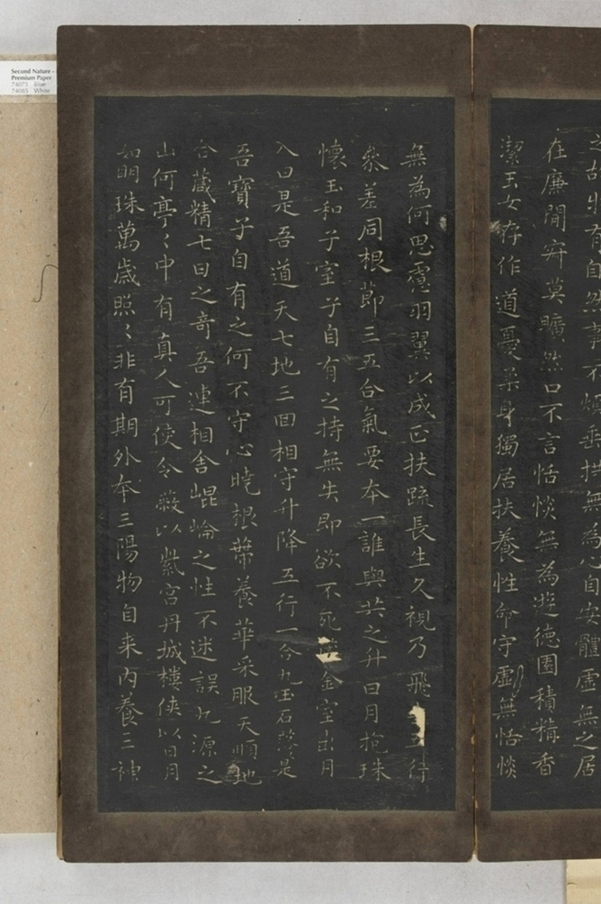 之故生有自然事不煩垂拱無為心自安體虛無之居
在廉間寂莫曠然口不言恬惔無為遊德園積精香
潔玉女存作道憂柔身獨居扶養性命守虛無恬惔
無為何思慮羽翼以成正扶疏長生久視乃飛五行
參差同根節三五合氣要本一誰與共之升日月抱珠
懷玉和子室子自有之持無失即欲不死藏金室出月
入日是吾道天七地三回相守升降五行一合九玉石落落是
吾寶子自有之何不守心曉根蔕養華采服天順地
合藏精七日之奇吾連相舍崐崘之性不迷誤九源之
山何亭〻中有真人可使令蔽以紫宮丹城樓俠以日月
如明珠萬歲照〻非有期外本三陽物自来内養三神
Second Nature -
Premium Paper
74075 Blue
74085 White